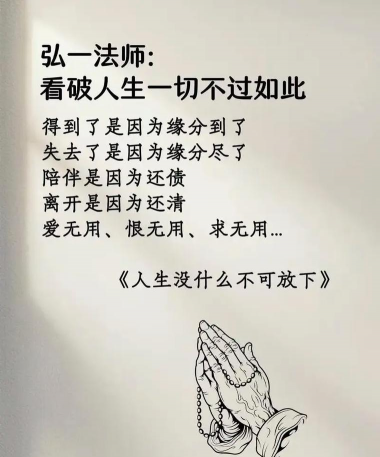 弘一法师:
看破人生一切不过如此
得到了是因为缘分到了
失去了是因为缘分尽了
陪伴是因为还债
离开是因为还清
爱无用、恨无用、求无用...
《人生没什么不可放下》